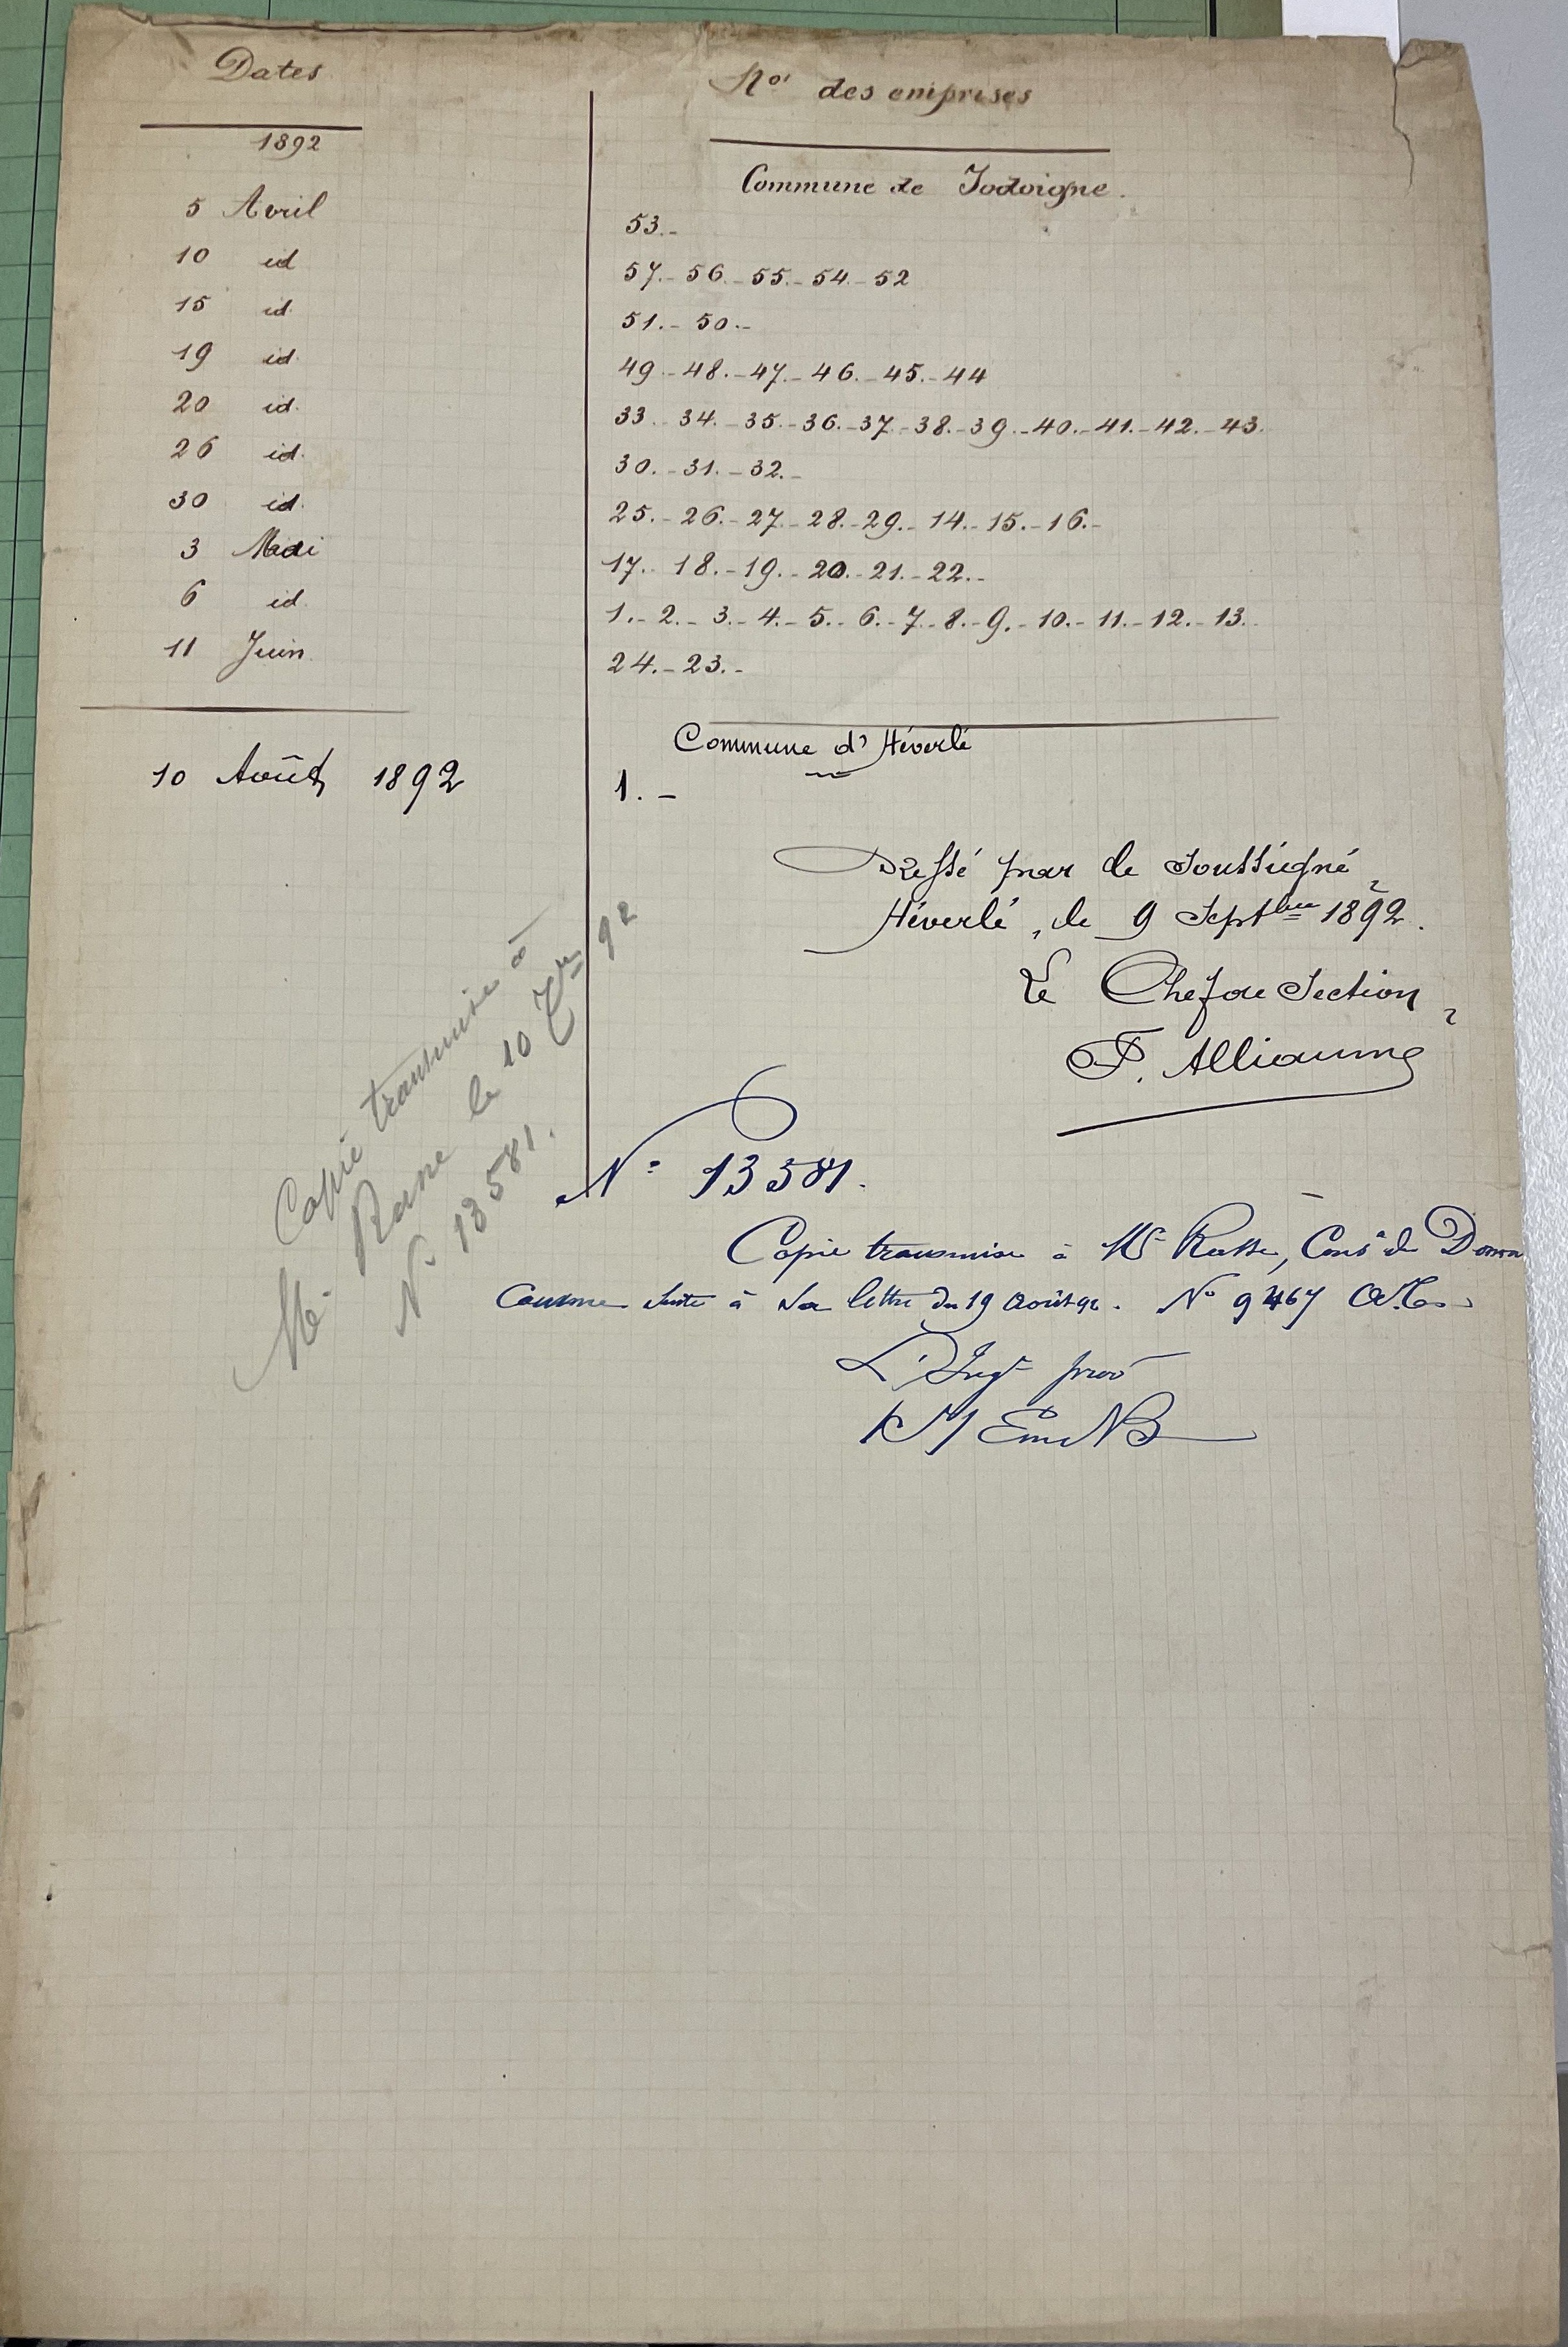 Dates Nos des emprises
1892
Commune de Jodoigne.
5 Avril 53.-
10 id 57.- 56.- 55.- 54.- 52
15 id. 51.- 50.-
19 id. 49.- 48.- 47.- 46.- 45.- 44
20 id. 33.- 34.- 35.- 36.- 37.- 38.- 39.- 40.- 41.- 42.- 43.
26 id. 30.- 31.- 32.-
30 id. 25.- 26.- 27.- 28.- 29.- 14.- 15.- 16.-
3 Mai 17.- 18.- 19.- 20.- 21.- 22.-
6 id. 1.- 2.- 3.- 4.- 5.- 6.- 7.- 8.- 9.- 10.- 11.- 12.- 13.
11 Juin 24.- 23.-
Commune d'Héverlé
10 Août 1892 1.-
Dressé par le soussigné,
Héverlé, le 9 Septbre 1892.
Le Chef de Section,
F. Alliaume
Copie transmise à
Mr. le 10 7bre 92
N° 13581.
N° 13581.
Copie transmise à Mr, Consr de
Comme suite à sa lettre du 19 Août 92. N° 9467
L'Ingr